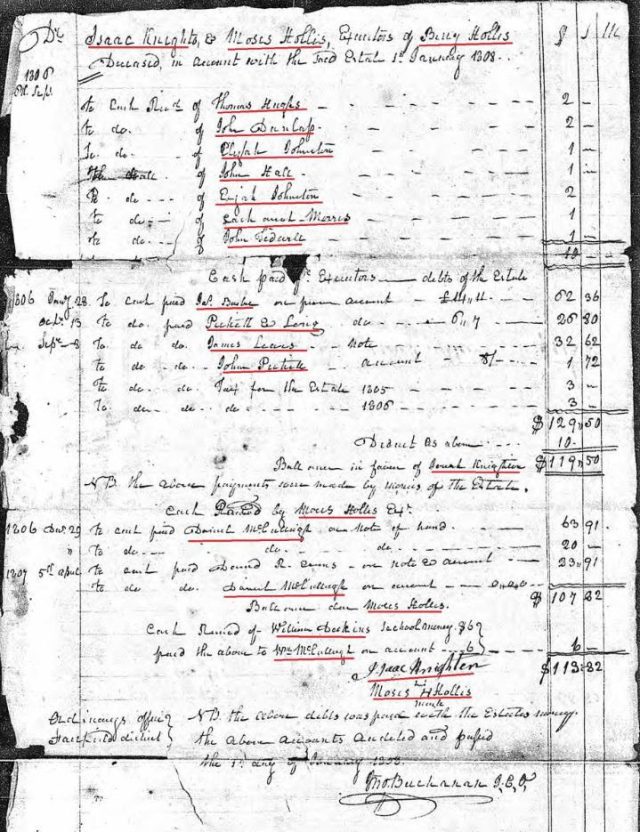 Dr Isaac Knighton, & Moses Hollis, Executors of Berry Hollis $ | M
Deceased, in account with the Said Estate 1st January 1808
1806
Sept
to Cash Recd of Thomas Hughs 2 -
to do. of John Dunlap. 2 -
To do. of Elijah Johnston 1 -
of John Hall 1 -
To do of Elijah Johnston 2 -
to do of Zach and Morris 1 -
to do of John 1 -
10 -
Cash paid Executors debts of the Estate
1806 Jany 28. To cash paid on account - £14.. 62 36
Octr. 13 to do paid Pickett & Long do - 6..7 26 80
Sepr 8 to do do James note 32 62
to do do John Pickett account 8/- 1 72
To do do Tax for the Estate 1805 3 -
To do do do 1806 3 -
$129,,50
Deduct as above 10.
Ballance in favor of Knighton $119,,50
NB. the above payments were made by monies of the Estate.
Cash by Moses Hollis Exr.
1806 29 to cash paid Daniel McCullough on Note of hand. 63 91
" to do do do 20 -
1807 5th April to cash paid David R. Evans on note & account 23,,91
to do do. Daniel McCullough on account
Ballance due Moses Hollis. $ 107 82
Cash of William School money. $6
paid the above to Wm McCullough on account 6 6 -
Isaac Knighton $113,,82
Moses H Hollis
mark
Ordinarys office NB. the above debts was paid with the Estates money.
Fairfield district the above accounts Audited and passed
the 1st day of January 1808
Jno. Buchanan